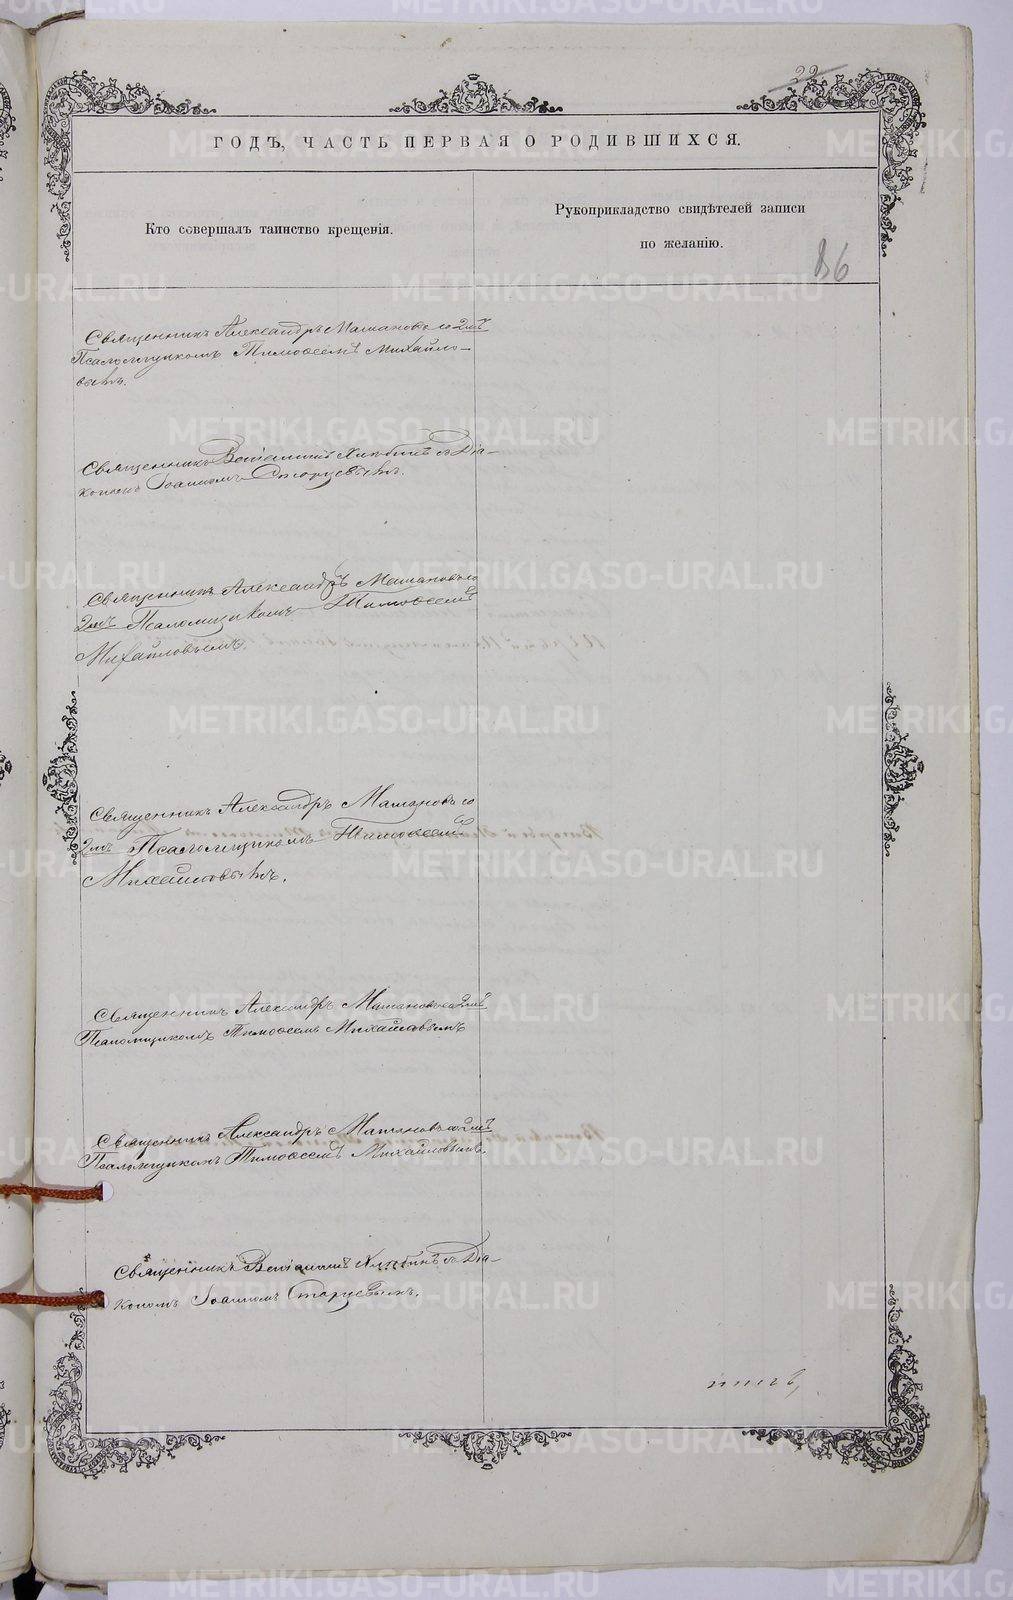 22
ГОДЪ, ЧАСТЬ ПЕРВАЯ О РОДИВШИХСЯ.
Кто совершалъ таинство крещенія.
Рукоприкладство свидѣтелей записи
по желанію.
36
Священникъ Александръ Мамановъ со 2мъ
Псаломщикомъ Тимоѳеемъ Михайло-
вымъ.
Священникъ Веніаминъ Хлѣбинъ съ Діа-
кономъ Іоанномъ Старцевымъ.
Священникъ Александръ Мамановъ со
2мъ Псаломщикомъ Тимоѳеемъ
Михайловымъ.
Священникъ Александръ Мамановъ со
2мъ Псаломщикомъ Тимоѳеемъ
Михайловымъ.
Священникъ Александръ Мамановъ со 2мъ
Псаломщикомъ Тимоѳеемъ Михайловымъ
Священникъ Александръ Мамановъ со 2мъ
Псаломщикомъ Тимоѳеемъ Михайловымъ.
Священникъ Веніаминъ Хлѣбинъ съ Діа-
кономъ Іоанномъ Старцевымъ.
METRIKI.GASO-URAL.RU